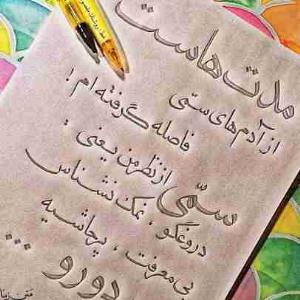 مدت هاست
از آدم های سمّی
فاصله گرفته ام !
سمّی از نظر من یعنی :
دروغگو ، نمک نشناس
بی معرفت ، پرحاشیه
دورو ...